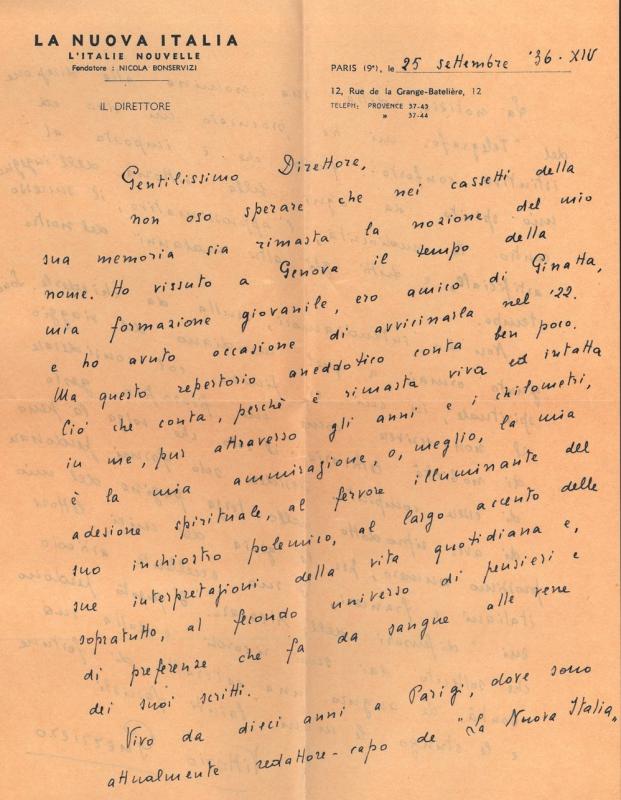 LA NUOVA ITALIA
L'ITALIE NOUVELLE
Fondatore : NICOLA BONSERVIZI
IL DIRETTORE
PARIS (9e), le 25 settembre '36 - XIV
12, Rue de la Grange-Batelière, 12
TELEPH: PROVENCE 37-43
» 37-44
Gentilissimo Direttore,
non oso sperare che nei cassetti della
sua memoria sia rimasta la nozione del mio
nome. Ho vissuto a Genova il tempo della
mia formazione giovanile, ero amico di Ginatta,
e ho avuto occasione di avvicinarla nel '22.
Ma questo repertorio aneddotico conta ben poco.
Ciò che conta, perchè è rimasta viva ed intatta
in me, pur attraverso gli anni e i chilometri,
è la mia ammirazione, o, meglio, la mia
adesione spirituale, al fervore illuminante del
suo inchiostro polemico, al largo accento delle
sue interpretazioni della vita quotidiana e,
sopratutto, al fecondo universo di pensieri e
di preferenze che fa da sangue alle vene
dei suoi scritti.
Vivo da dieci anni a Parigi, dove sono
attualmente redattore-capo de "La Nuova Italia"